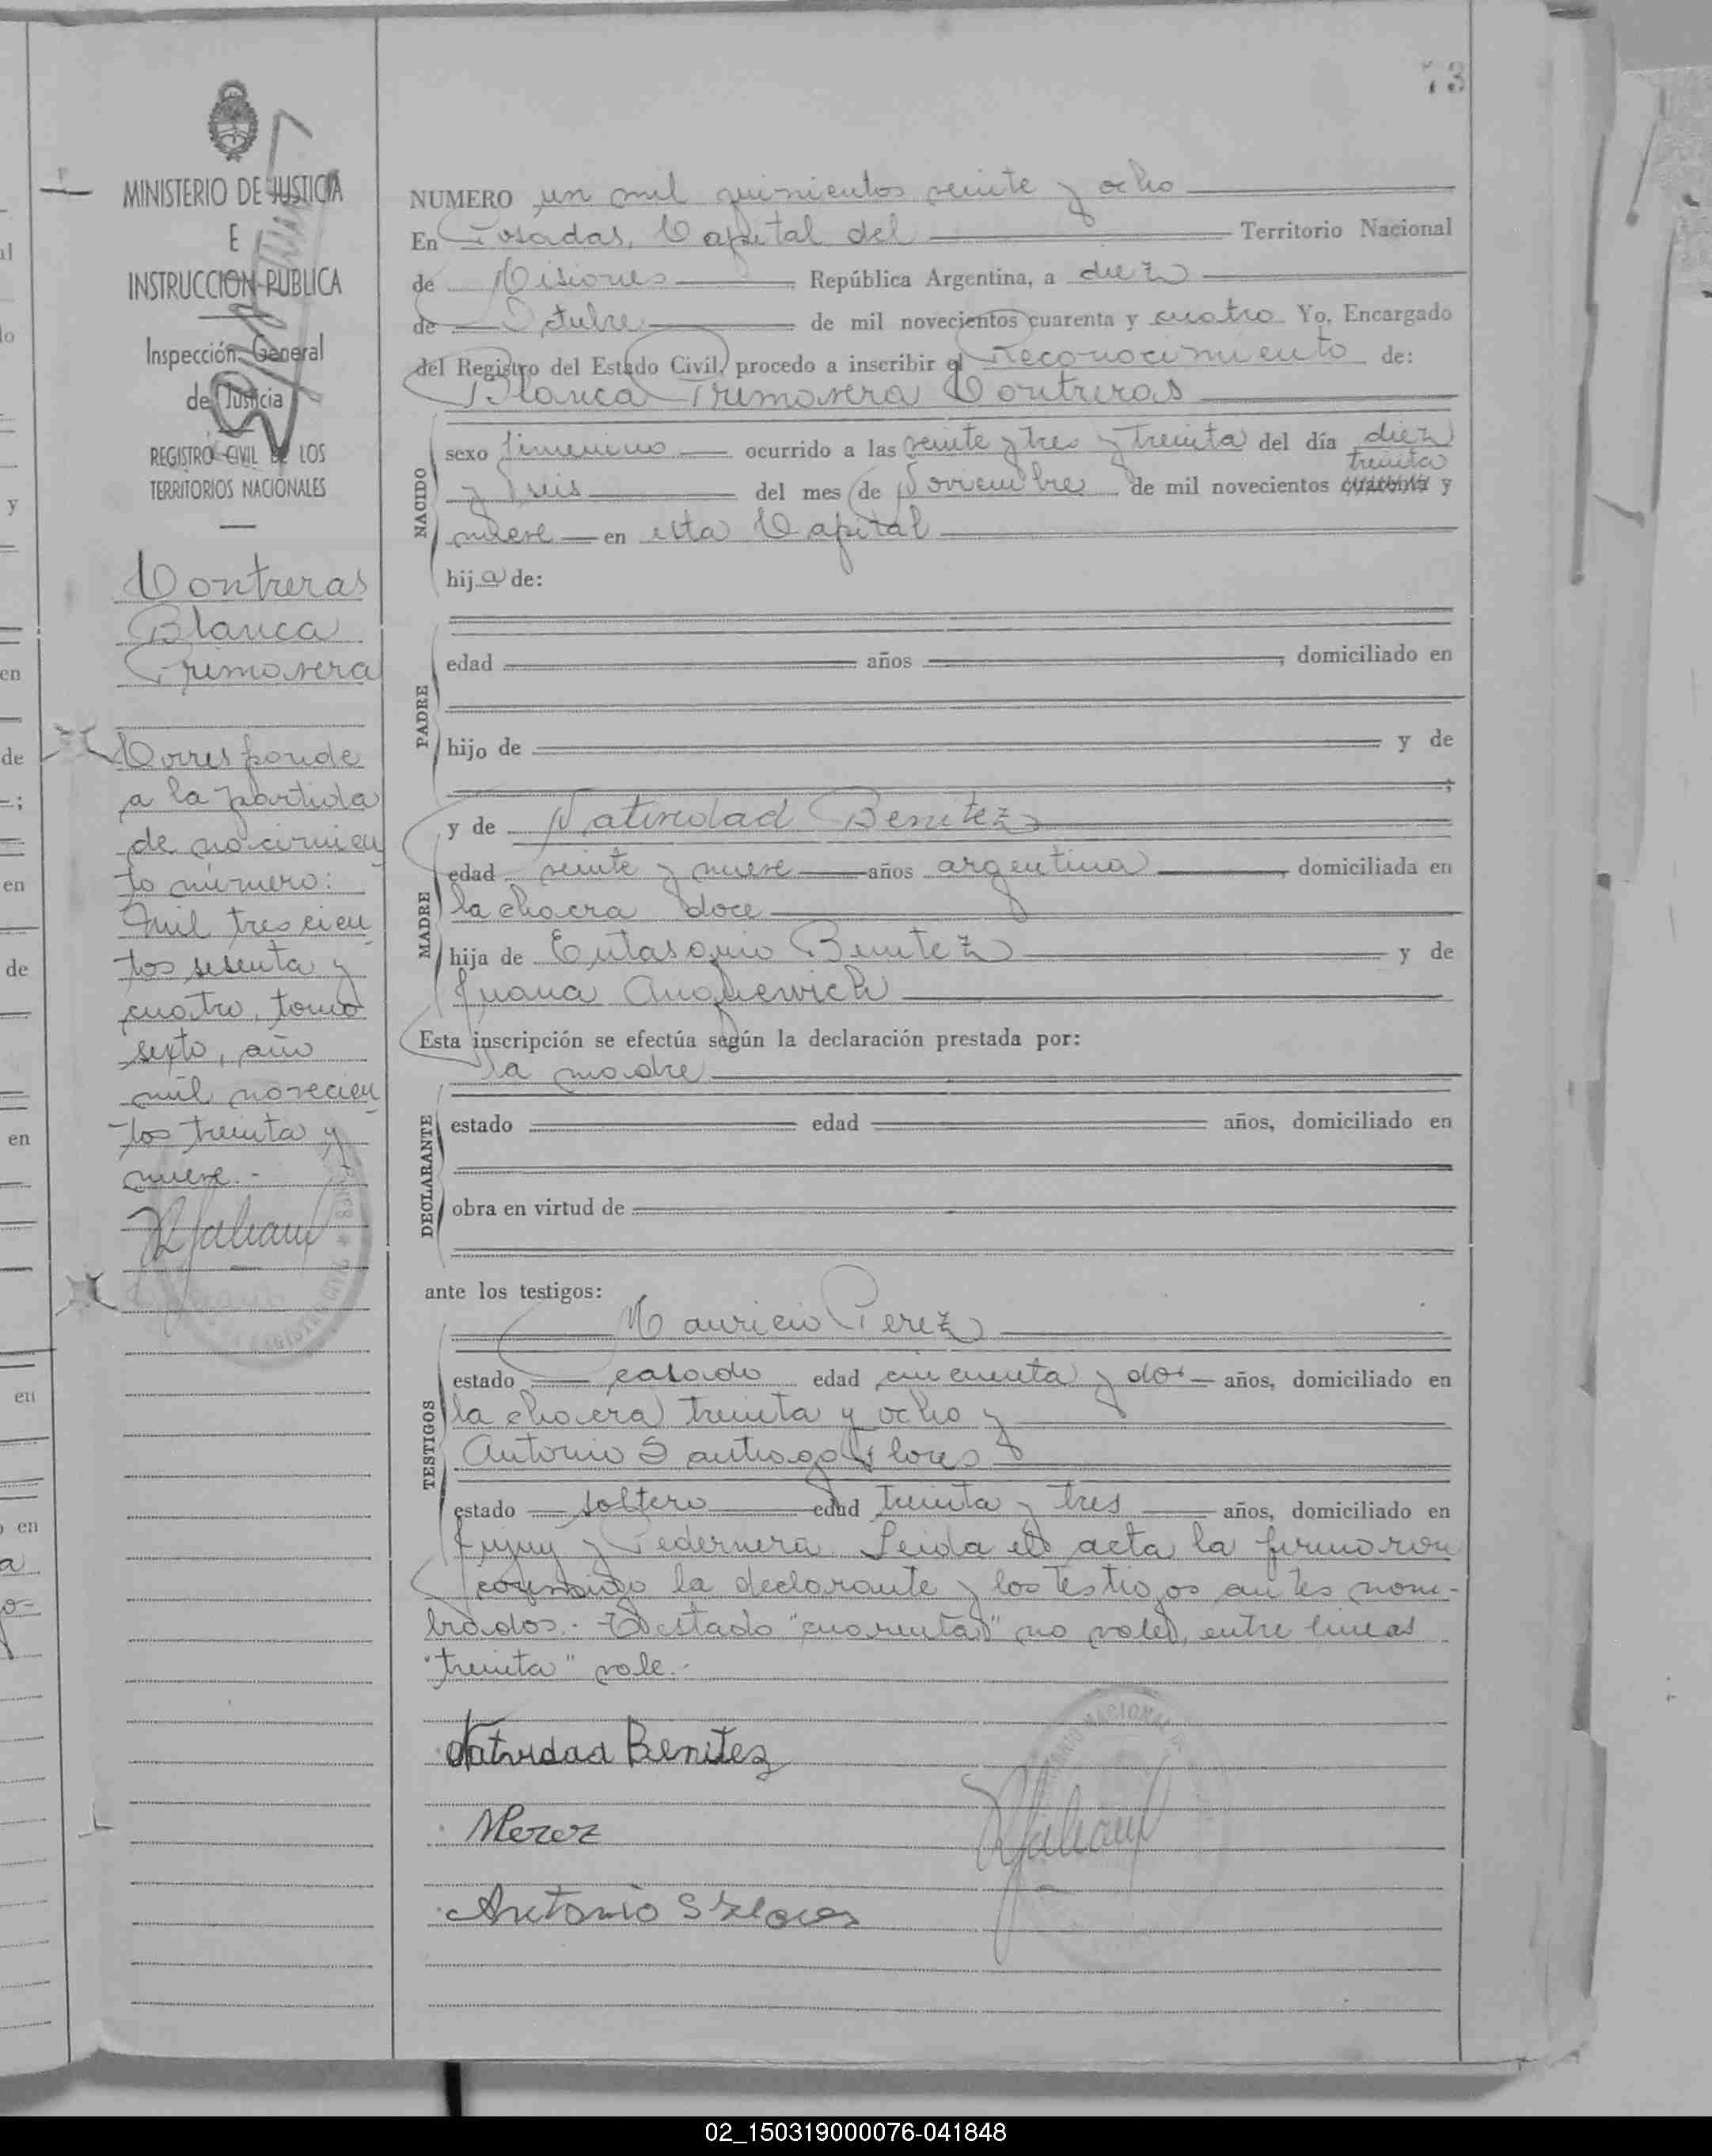 73
MINISTERIO DE JUSTICIA
E
INSTRUCCION PUBLICA
Inspección General
de Justicia
REGISTRO CIVIL DE LOS
TERRITORIOS NACIONALES
Contreras
Blanca
Primavera
Corresponde
a la partida
de nacimien
to número:
Mil trescien
tos sesenta y
cuatro, tomo
sexto, año
mil novecien
tos treinta y
nueve.-
NUMERO un mil quinientos veinte y ocho
En Posadas, Capital del Territorio Nacional
de Misiones República Argentina, a diez
de Octubre de mil novecientos cuarenta y cuatro Yo, Encargado
del Registro del Estado Civil, procedo a inscribir el Reconocimiento de:
Blanca Primavera Contreras
NACIDO
sexo femenino ocurrido a las veinte y tres y treinta del día diez
treinta
y seis del mes de Noviembre de mil novecientos cuarenta y
nueve en esta Capital
hija de:
PADRE
edad años , domiciliado en
hijo de y de
;
MADRE
y de Natividad Benitez
edad veinte y nueve años argentina , domiciliada en
la chacra doce
hija de Eutasquio Benitez y de
Juana
Esta inscripción se efectúa según la declaración prestada por:
la madre
DECLARANTE
estado edad años, domiciliado en
obra en virtud de
ante los testigos:
TESTIGOS
Mauricio Perez
estado casado edad cincuenta y dos años, domiciliado en
la chacra treinta y ocho y
Antonio Santiago Flores
estado soltero edad treinta y tres años, domiciliado en
Jujuy y Pedernera. Leida el acta la firmaron
conmigo la declarante y los testigos antes nom-
brados.- Testado "cuarenta" no vale, entre lineas
"treinta" vale.-
Natividad Benitez
MPerez
Antonio S Flores
02_150319000076-041848